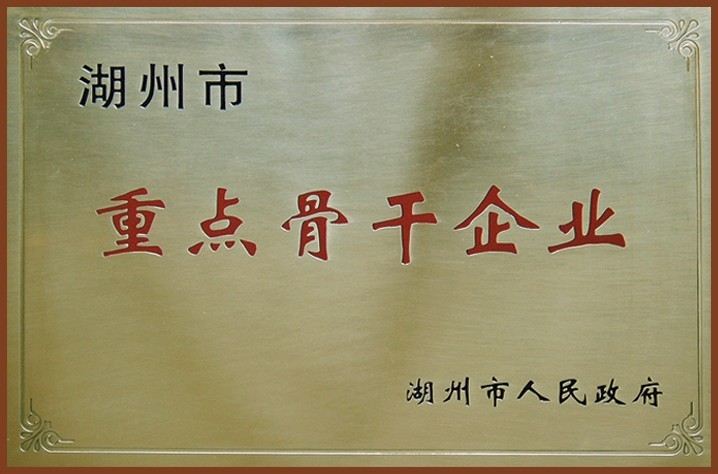 湖州市
重点骨干企业
湖州市人民政府